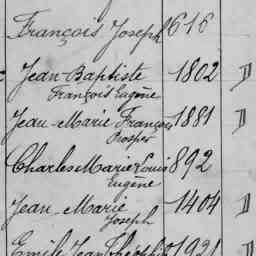 François Joseph 616
Jean-Baptiste 1802 D
François Eugène
Jean-Marie François 1881 D
Prosper
Charles Marie Louis 892
Eugène
Jean-Marie 1404 D
Joseph
Emile Jean Théophile 1921 D